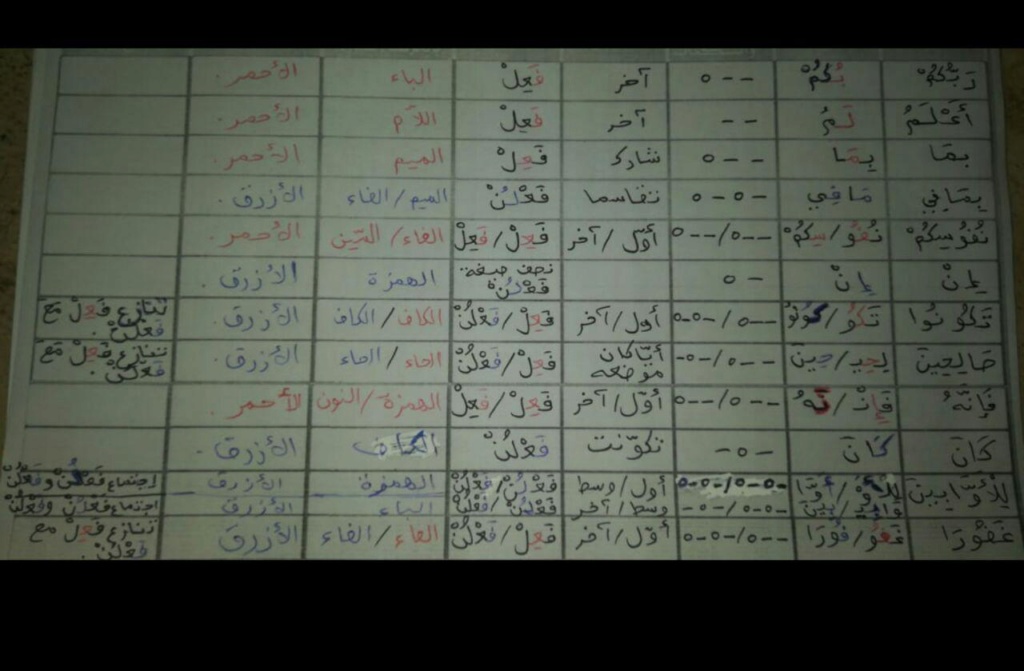 رَبُّكُمْ بُكُمْ --- ه آخر فَعِلْ الباء الأحمر.
أَعْلَمُ لَمُ -- آخر فَعِلْ اللآم الأحمر.
بِمَا بِمَا --- ه شارك فَعِلْ الميم الأحمر.
بِمَافِي مَافِي - ه - ه تقاسما فَعْلُنْ الميم/الفاء الأزرق.
نُفُوسِكُمْ نُفُو/سِكُمْ --- ه/--- ه أوّل/آخر فَعِلْ/فَعِلْ الفاء/السّين الأحمر.
إِنْ إِنْ - ه نصف صيغة فَعْلُنْ الهمزة الأزرق.
تَكُونُوا تَكُو/كُونُو --- ه/- ه - ه أول/آخر فَعِلْ/فَعْلُنْ الكاف/الكاف الأزرق. تنازع فَعِلْ مع فَعْلُنْ.
صَالِحِينَ لِحِيـ/حِينَ --- ه/- ه - أيّا كان موضعه فَعِلْ/فَعْلُنْ الحاء/الحاء الأزرق. تنازع فَعِلْ مع فَعْلُنْ.
فَإِنَّهُ فَإِنْ/نَهُ --- ه/--- ه أوّل/آخر فَعِلْ/فَعِلْ الهمزة/النون الأحمر.
كَانَ كَانَ - ه - تكوّنت فَعْلُنْ الكاف الأزرق.
لِلْأَوَّابِينَ أول/وسط فَعْلُنْ/فَعْلُنْ الهمزة الأزرق إجتماع فَعْلُنْ وفَعْلُنْ
وسط/آخر فَعْلُنْ/فَعْلُنْ الباء الأزرق اجتماع فَعْلُنْ وفَعْلُنْ
غَفُورَا غَفُو/فُورَا --- ه/- ه - ه أوّل/آخر فَعِلْ/فَعْلُنْ الفاء/الفاء الأزرق تنازع فَعِلْ مع فَعْلُنْ.